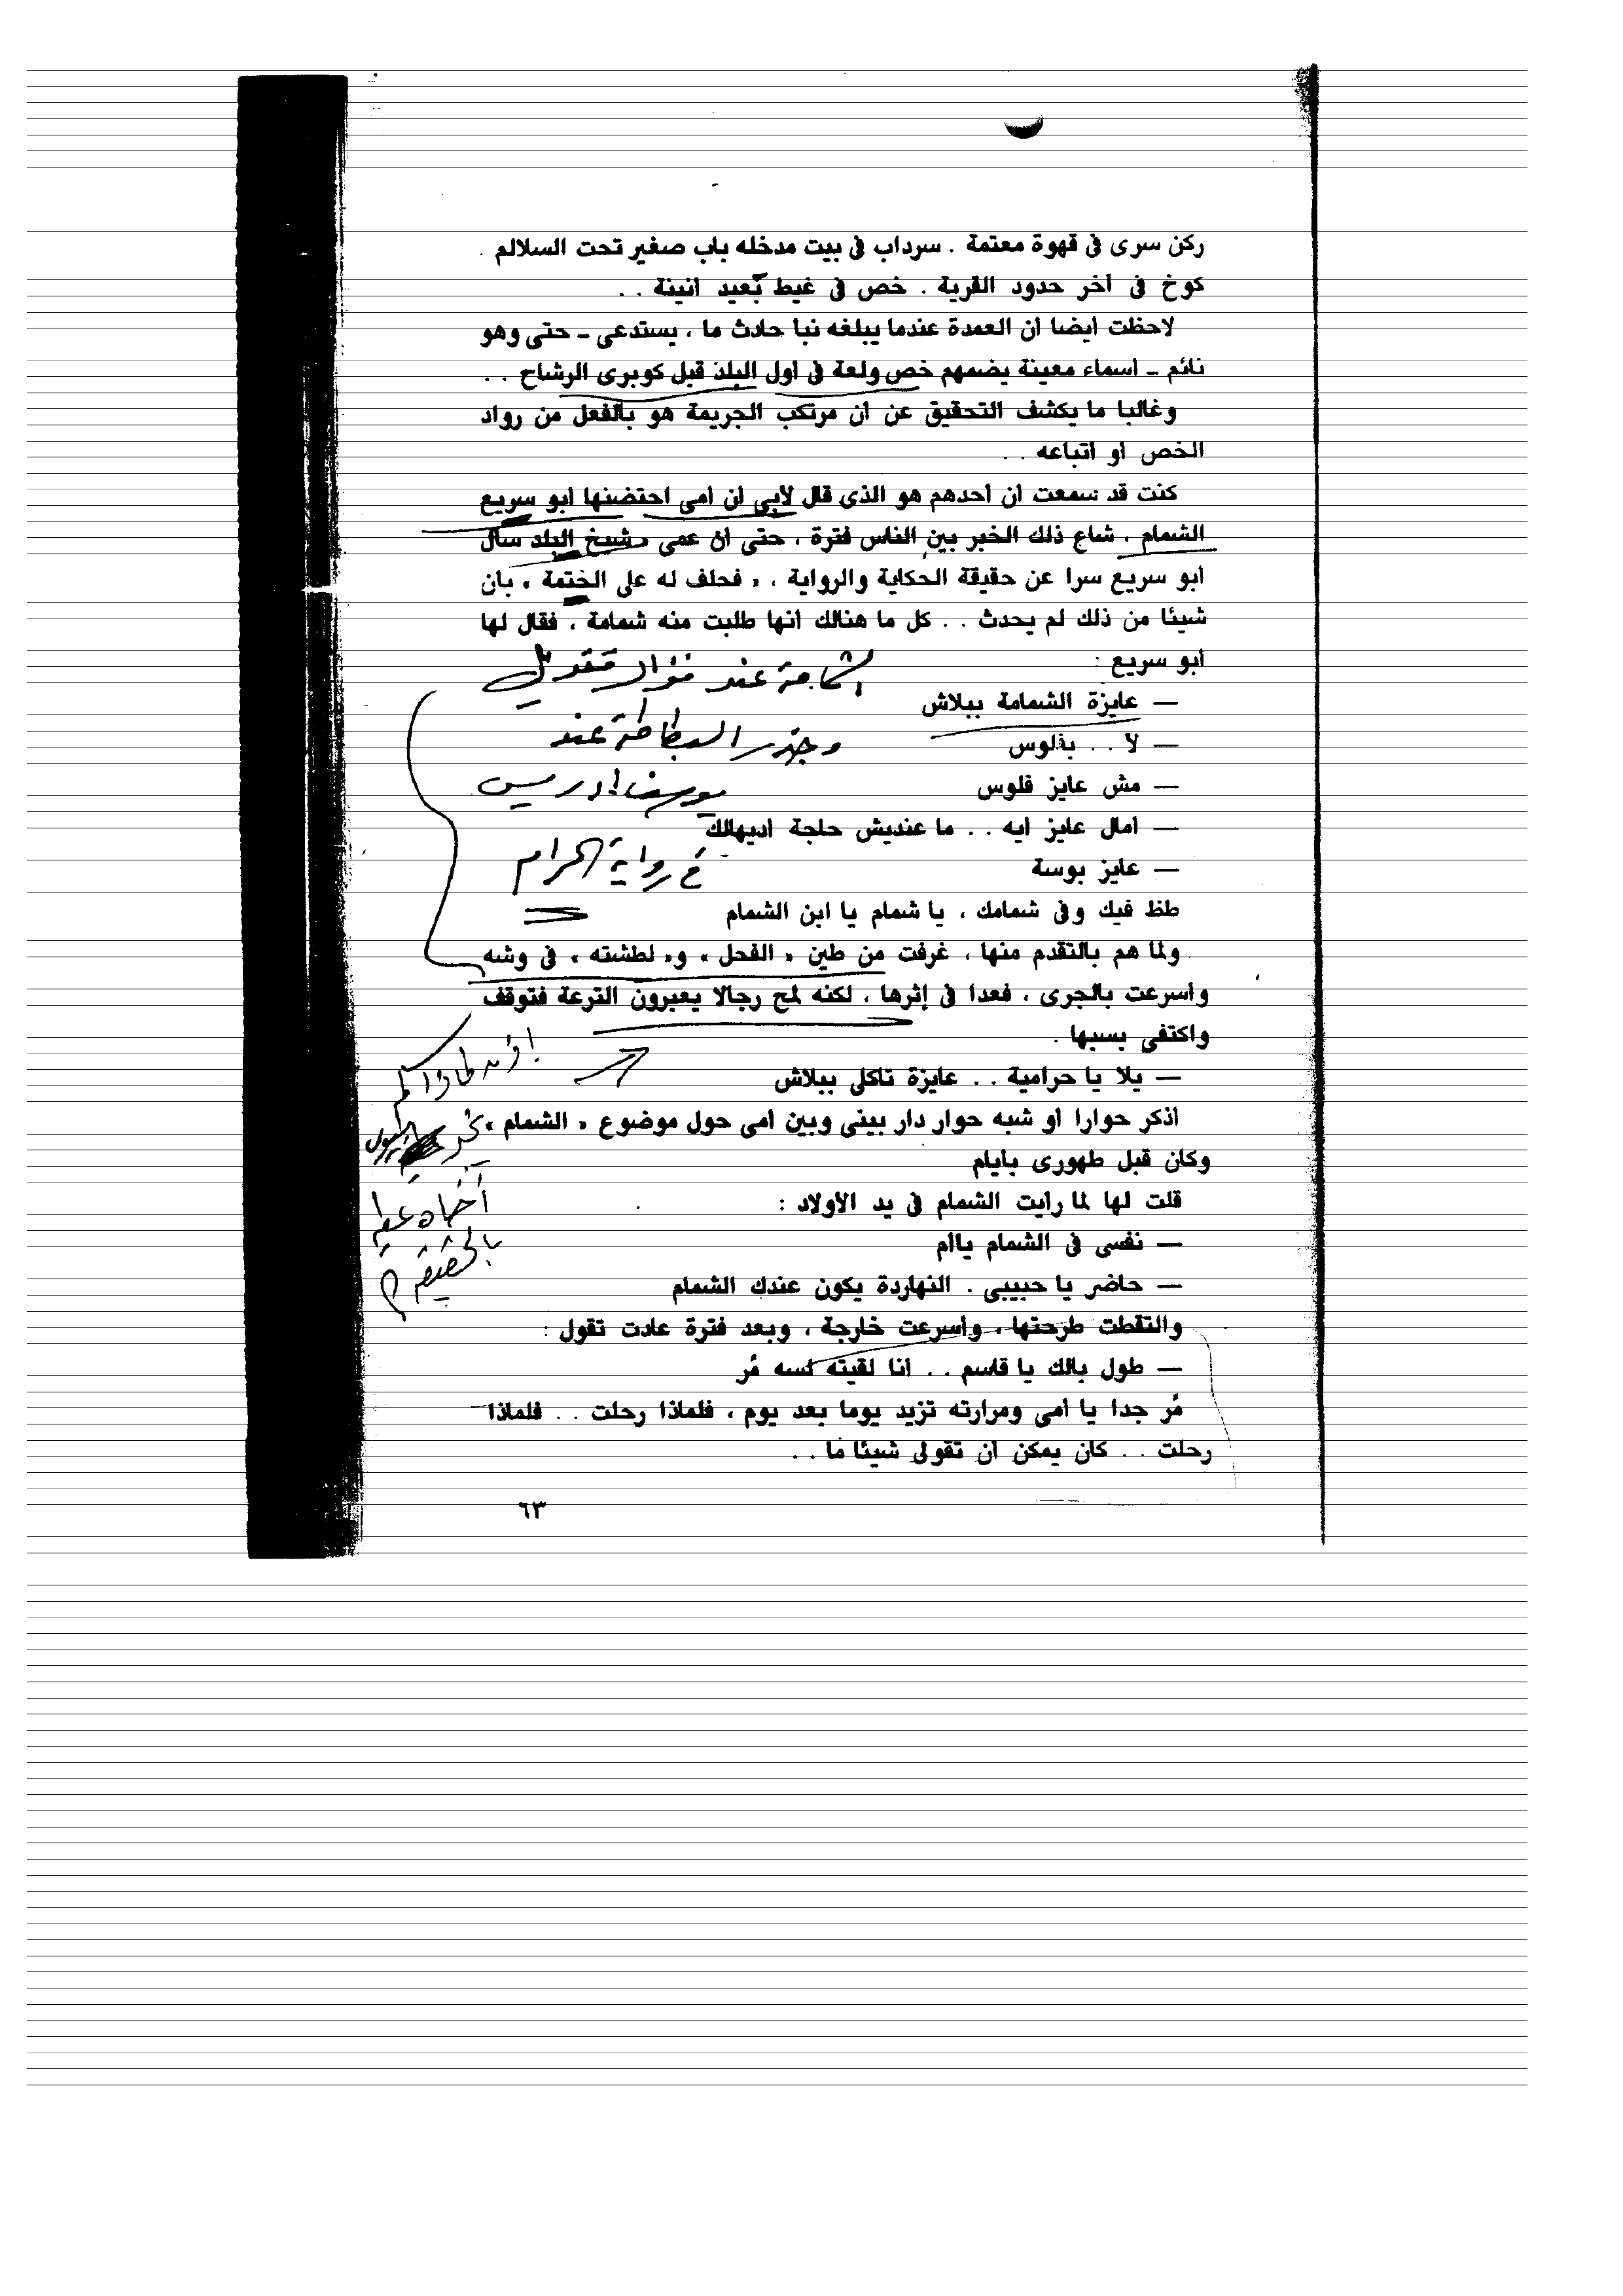 ركن سرى فى قهوة معتمة . سرداب فى بيت مدخله باب صغير تحت السلالم .
كوخ فى آخر حدود القرية . خص فى غيط بعيد أنينة . .
لاحظت أيضا أن العمدة عندما يبلغه نبأ حادث ما ، يستدعى ــ حتى وهو
نائم ــ أسماء معينة يضمهم خص ولعة فى أول البلد قبل كوبرى الرشاح . .
وغالبا ما يكشف التحقيق عن أن مرتكب الجريمة هو بالفعل من رواد
الخص أو أتباعه . .
كنت قد سمعت أن أحدهم هو الذى قال لأبى أن أمى احتضنها أبو سريع
الشمام ، شاع ذلك الخبر بين الناس فترة ، حتى أن عمى شيخ البلد سأل
أبو سريع سرا عن حقيقة الحكاية والرواية ، « فحلف له على الختمة » بأن
شيئا من ذلك لم يحدث . . كل ما هنالك أنها طلبت منه شمامة ، فقال لها
أبو سريع :
الشمامة عند فؤاد قنديل
— عايزة الشمامة ببلاش
وجذر البطاطة عند
— لا . . بفلوس
يوسف ادريس
— مش عايز فلوس
— أمال عايز أيه . . ما عنديش حاجة أديهالك
فى رواية الحرام
— عايز بوسة
طظ فيك وفى شمامك ، يا شمام يا ابن الشمام
ولما هم بالتقدم منها ، غرفت من طين « الفحل » و« لطشته » فى وشه
وأسرعت بالجرى ، فعدا فى إثرها ، لكنه لمح رجالا يعبرون الترعة فتوقف
واكتفى بسبها .
— يلا يا حرامية . . عايزة تاكلى ببلاش
أذكر حوارا أو شبه حوار دار بينى وبين أمى حول موضوع « الشمام »
وكان قبل طهورى بأيام
قلت لها لما رأيت الشمام فى يد الأولاد :
— نفسى فى الشمام ياأم
— حاضر يا حبيبى . النهاردة يكون عندك الشمام
والتقطت طرحتها ، وأسرعت خارجة ، وبعد فترة عادت تقول :
— طول بالك يا قاسم . . أنا لقيته لسه مُر
مُر جدا يا أمى ومرارته تزيد يوما بعد يوم ، فلماذا رحلت . . فلماذا
رحلت . . كان يمكن أن تقولى شيئا ما . .
٦٣